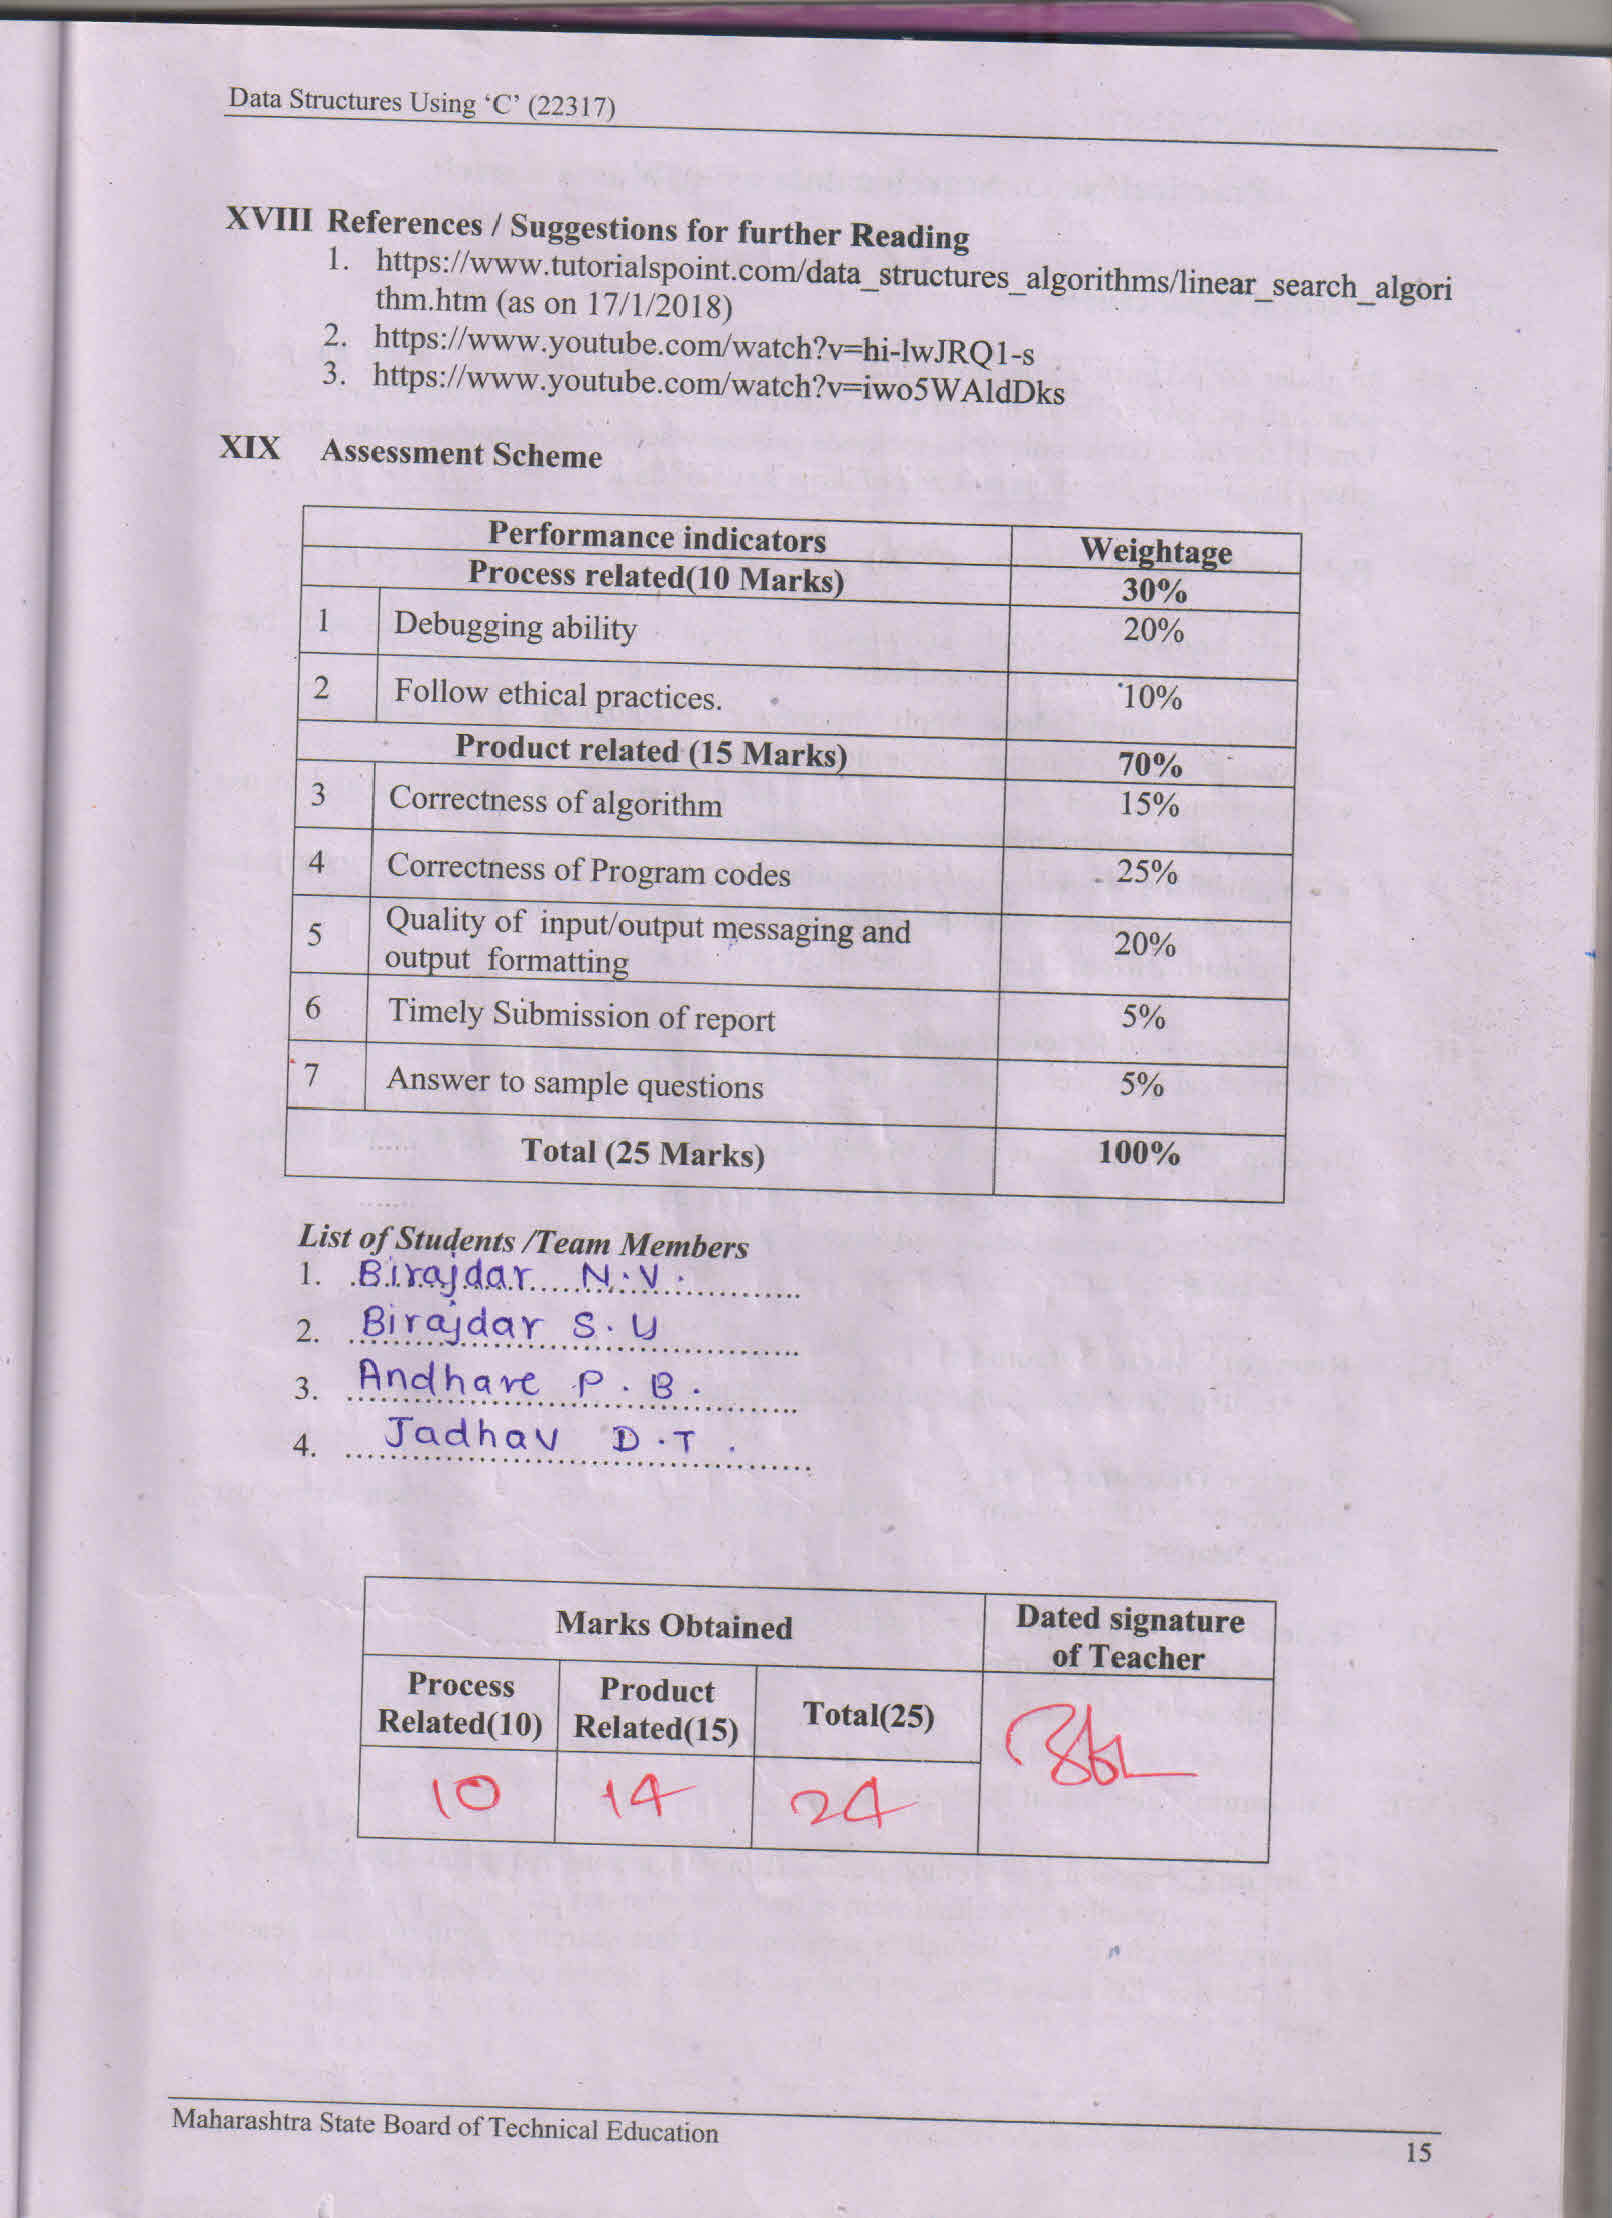 Data Structures Using ‘C’ (22317)
XVIII References / Suggestions for further Reading
1. https://www.tutorialspoint.com/data_structures_algorithms/linear_search_algori
thm.htm (as on 17/1/2018)
2. https://www.youtube.com/watch?v=hi-lwJRQ1-s
3. https://www.youtube.com/watch?v=iwo5WAldDks
XIX Assessment Scheme
Performance indicators Weightage
Process related(10 Marks) 30%
1 Debugging ability 20%
2 Follow ethical practices. 10%
Product related (15 Marks) 70%
3 Correctness of algorithm 15%
4 Correctness of Program codes 25%
5 Quality of input/output messaging and 20%
output formatting
6 Timely Submission of report 5%
7 Answer to sample questions 5%
Total (25 Marks) 100%
List of Students /Team Members
1. Birajdar N.V.
2. Birajdar S.U
3. Andhare P.B.
4. Jadhav D.T.
Marks Obtained Dated signature
of Teacher
Process Product Total(25)
Related(10) Related(15)
10 14 24
Maharashtra State Board of Technical Education
15